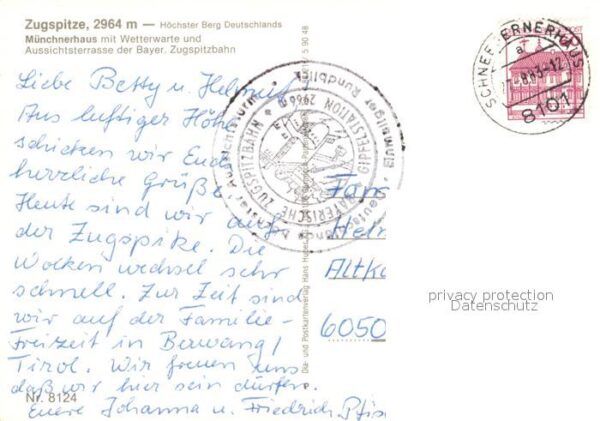 Zugspitze, 2964 m — Höchster Berg Deutschlands
Münchnerhaus mit Wetterwarte und
Aussichtsterrasse der Bayer. Zugspitzbahn
Liebe Betty u. Helmut!
Aus luftiger Höhe
schicken wir Euch
herzliche Grüße
Heute sind wir auf
der Zugspitze. Die
Wolken wechseln sehr
schnell. Zur Zeit sind
wir auf der Familie-
Freizeit in Berwang/
Tirol. Wir freuen uns
daß wir hier sein dürfen.
Eure Johanna u. Friedrich
Nr. 8124
BAYERISCHE ZUGSPITZBAHN
GIPFELSTATION 2966
SCHNEEFERNERHAUS
a
8101
Fam
Altk
6050
privacy protection
Datenschutz